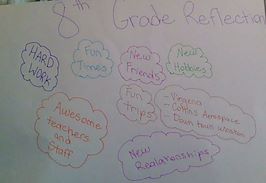 8th Grade Reflection
HARD
WORK
Fun
Times
New
Friends
New
Hobbies
Awesome
teachers
and
Staff
Fun
Trips
- Virginia
- Collins Aerospace
- Down town Winston
New
Realationships